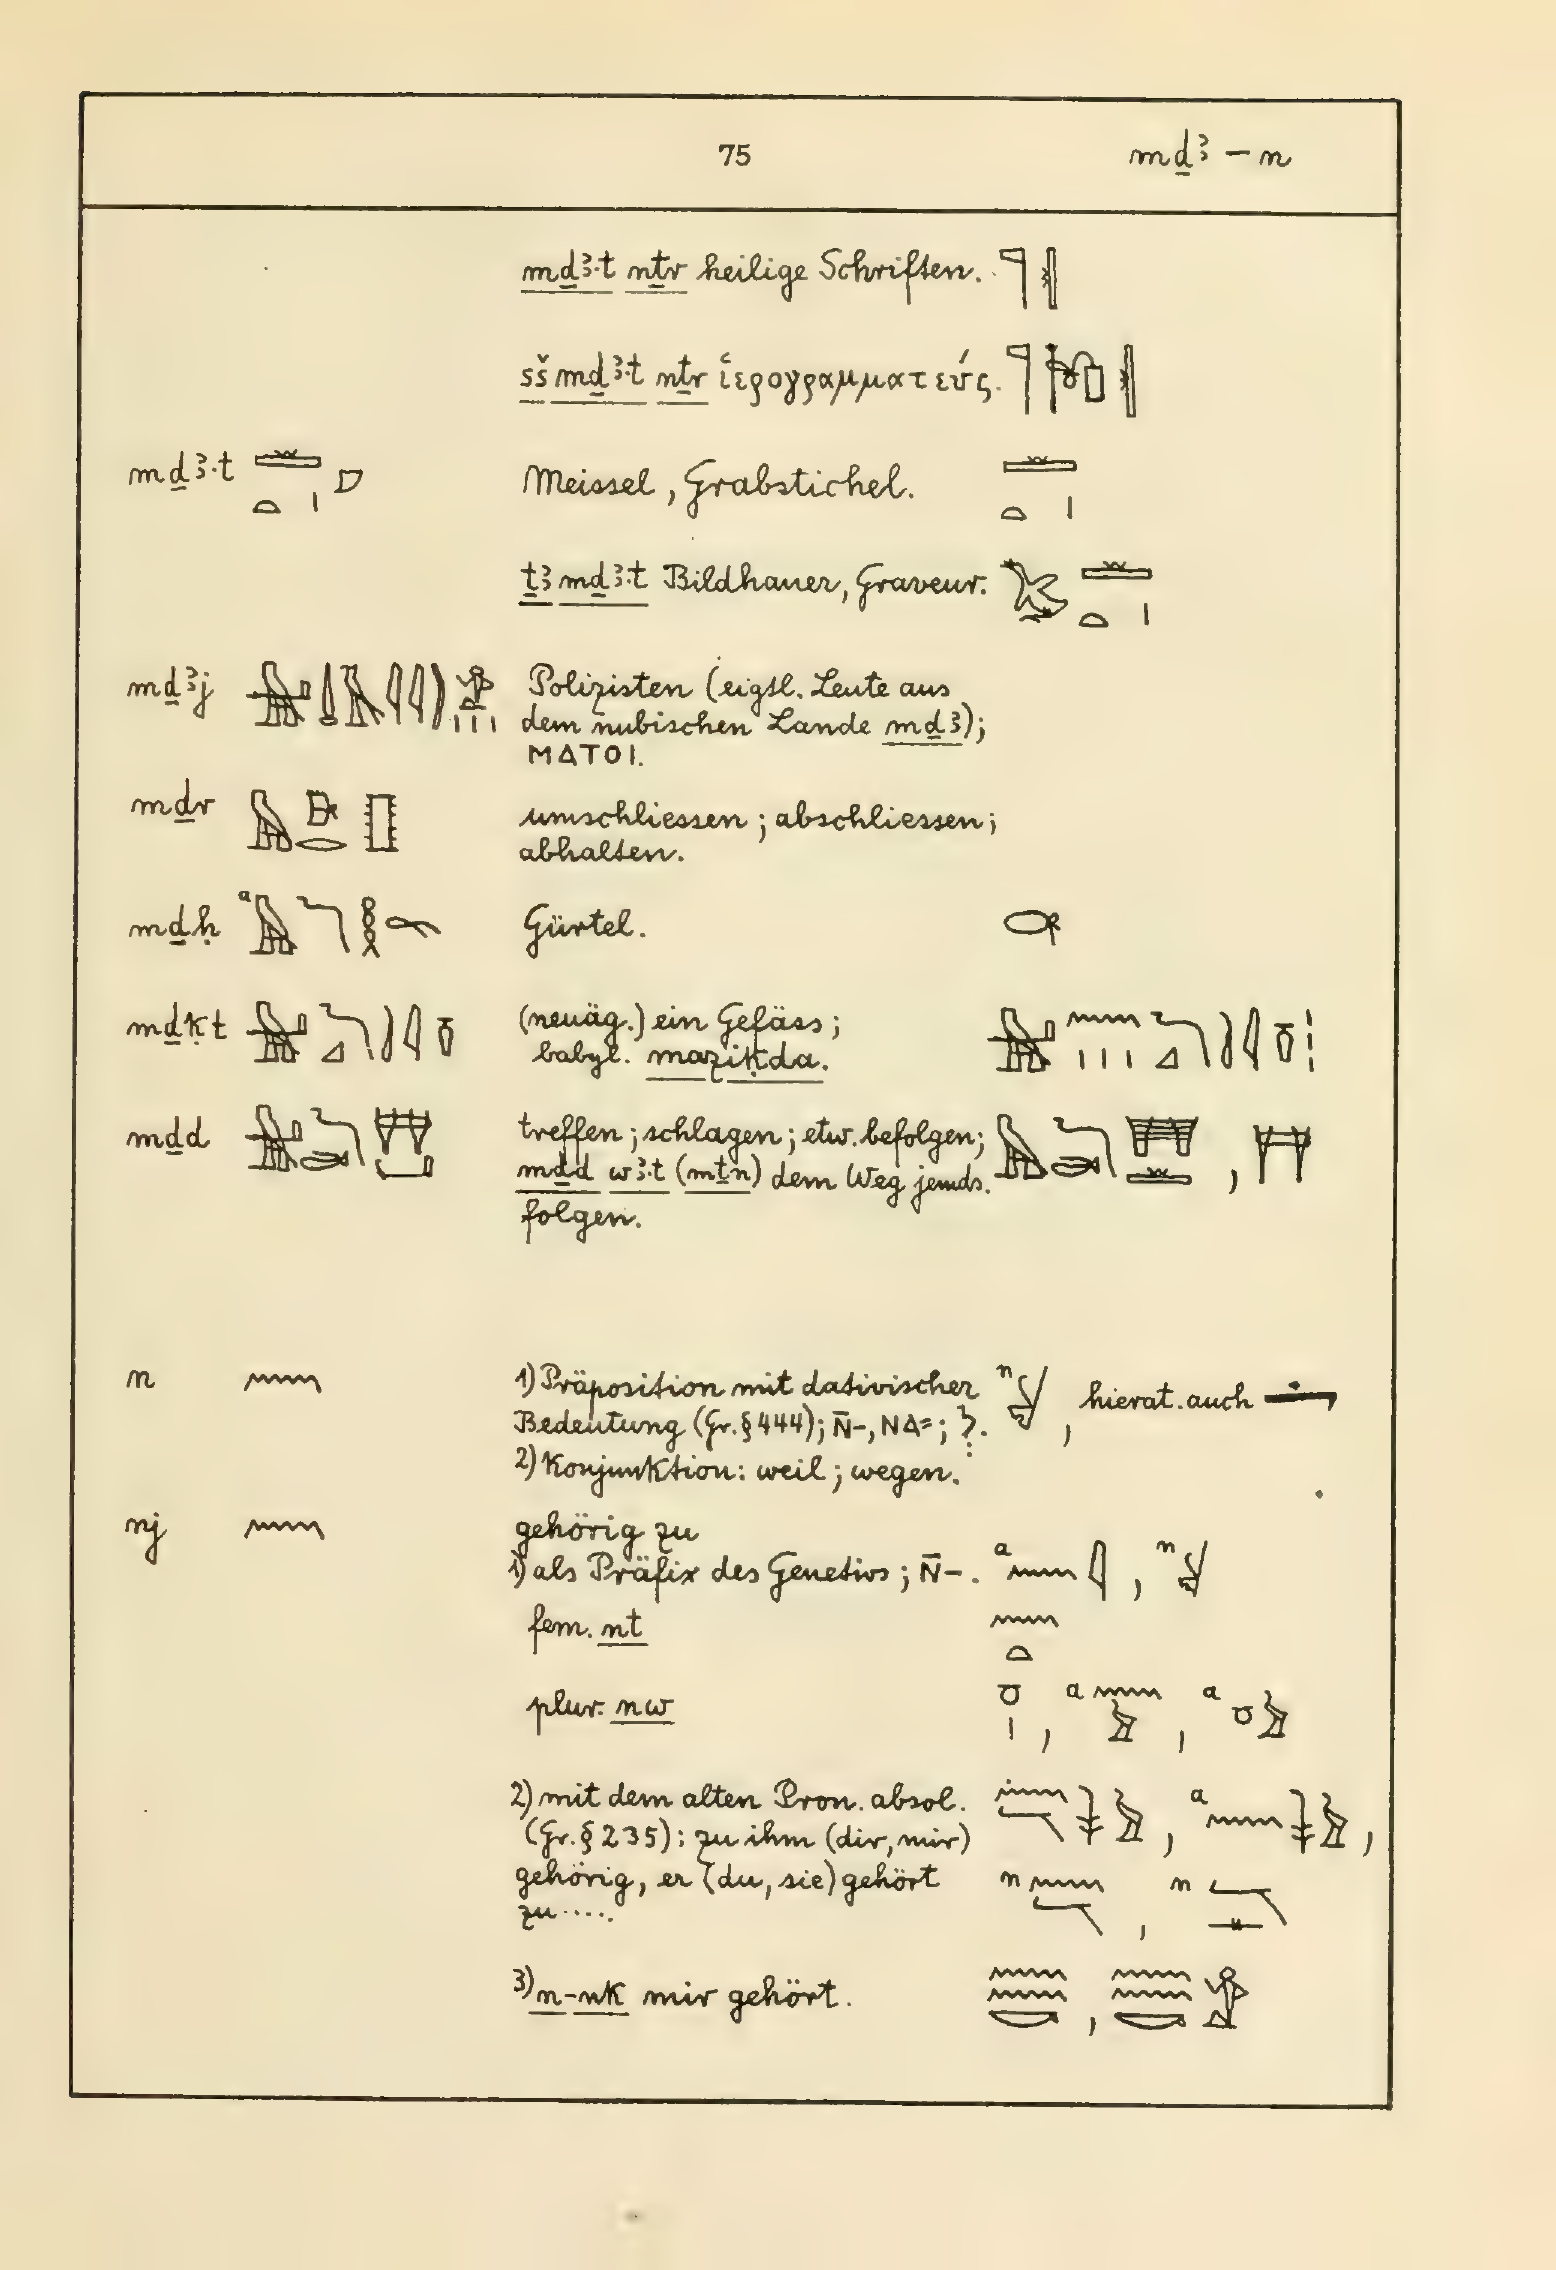 75 mḏꜣ – n
mḏꜣ·t nṯr heilige Schriften.
sš mḏꜣ·t nṯr ἱερογραμματεύς.
mḏꜣ·t Meissel, Grabstichel.
ṯꜣ mḏꜣ·t Bildhauer, Graveur.
mḏꜣj Polizisten (eigtl. Leute aus
dem nubischen Lande mḏꜣ);
ⲘⲀⲦⲞⲒ.
mḏr umschliessen; abschliessen;
abhalten.
mḏḥ a Gürtel.
mḏḳt (neuäg.) ein Gefäss;
babyl. maziḳda.
mḏd treffen; schlagen; etw. befolgen;
mḏd wꜣ·t (mṯn) dem Weg jemds. ,
folgen.
n 1) Präposition mit dativischer n , hierat. auch
Bedeutung (Gr. § 444); Ⲛ̄-, ⲚⲀ⸗;
2) Konjunktion: weil; wegen.
nj gehörig zu
1) als Präfix des Genetivs; Ⲛ̄-. a , n
fem. nt
plur. nw , a , a
2) mit dem alten Pron. absol. , a ,
(Gr. § 235): zu ihm (dir, mir)
gehörig, er (du, sie) gehört n , n
zu .....
3) n-nk mir gehört. ,